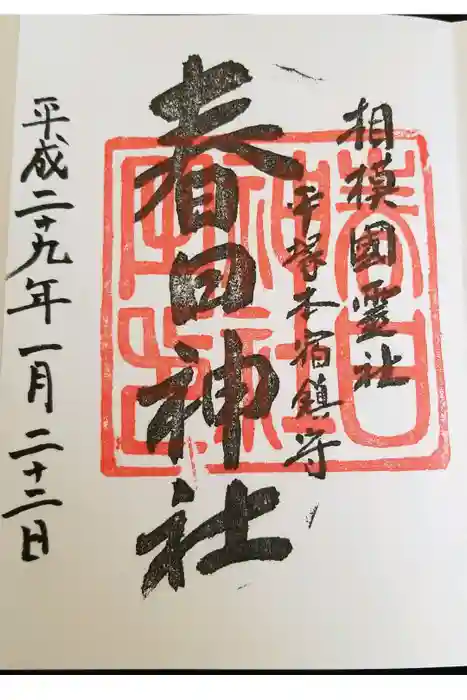 相模國霊社
平塚本宿鎮守
春日神社
平成二十九年一月二十二日